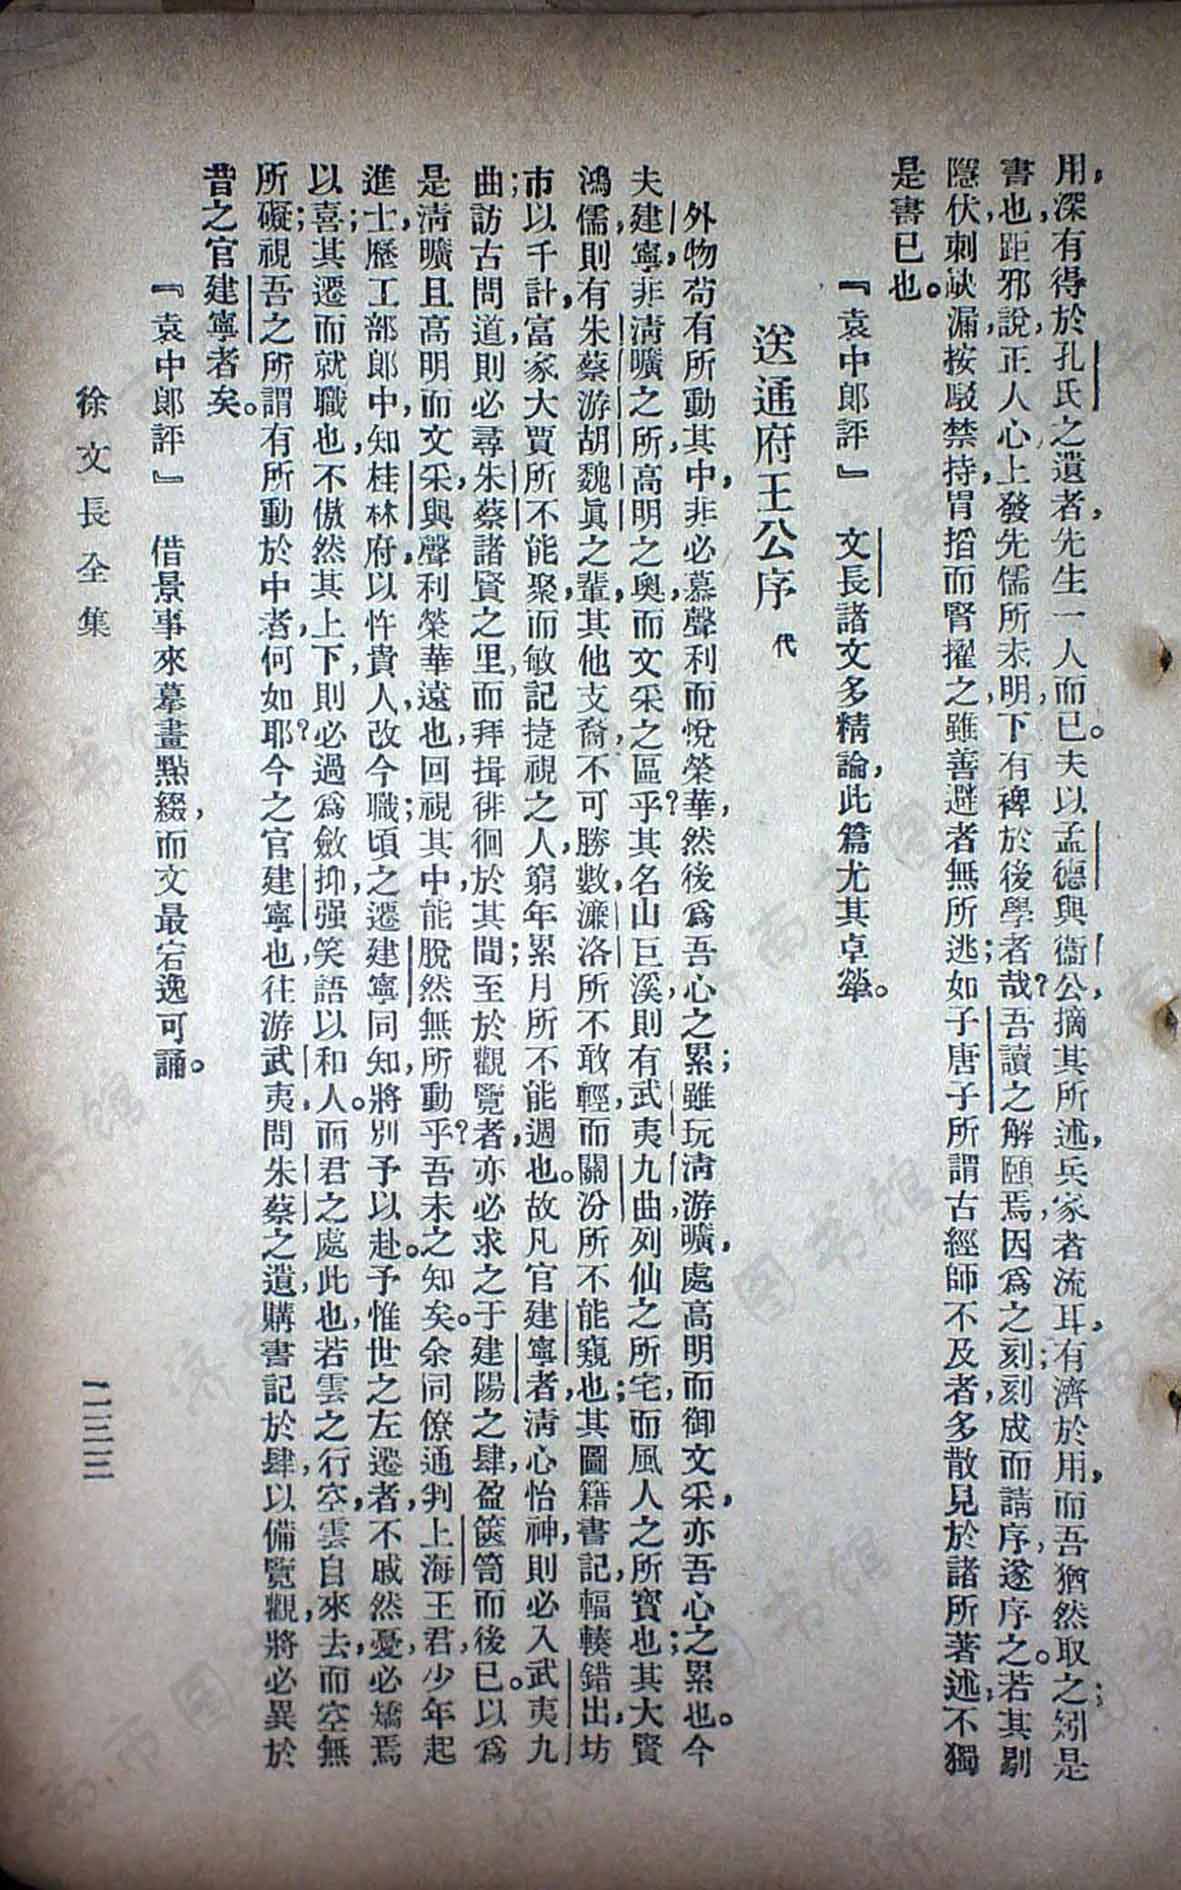 用，深有得於孔氏之遺者，先生一人而已。夫以孟德與衞公，摘其所述，兵家者流耳，有濟於用，而吾猶然取之；矧是
書也，距邪說，正人心，上發先儒所未明，下有裨於後學者哉？吾讀之解頤焉，因爲之刻；刻成而請序，遂序之。若其剔
隱伏，刺缺漏，按駁禁持，胃搯而腎擢之，雖善避者無所逃；如子唐子所謂古經師不及者，多散見於諸所著述，不獨
是書已也。
『袁中郎評』　文長諸文多精論，此篇尤其卓犖。
送通府王公序　代
外物苟有所動其中，非必慕聲利而悅榮華，然後爲吾心之累；雖玩淸游曠，處高明而御文采，亦吾心之累也。今
夫建寧，非淸曠之所，高明之奧，而文采之區乎？其名山巨溪，則有武夷九曲，列仙之所宅，而風人之所寳也；其大賢
鴻儒，則有朱蔡游胡魏眞之輩，其他支裔，不可勝數，濂洛所不敢輕，而關汾所不能窺也；其圖籍書記，輻輳錯出，坊
市以千計，富家大賈所不能聚，而敏記捷視之人，窮年累月所不能週也。故凡官建寧者，淸心怡神，則必入武夷九
曲；訪古問道，則必尋朱蔡諸賢之里，而拜揖徘徊於其間；至於觀覽者，亦必求之于建陽之肆，盈篋笥而後已。以爲
是淸曠且高明而文采，與聲利榮華遠也，回視其中，能脫然無所動乎？吾未之知矣。余同僚通判上海王君，少年起
進士，歷工部郎中，知桂林府，以忤貴人，改今職；頃之，遷建寧同知，將別予以赴。予惟世之左遷者，不戚然憂，必矯焉
以喜；其遷而就職也，不傲然其上下，則必過爲斂抑，强笑語以和人。而君之處此也，若雲之行空，雲自來去，而空無
所礙；視吾之所謂有所動於中者，何如耶？今之官建寧也，往游武夷，問朱蔡之遺，購書記於肆，以備覽觀，將必異於
昔之官建寧者矣。
『袁中郎評』　借景事來摹畫點綴，而文最宕逸可誦。
徐文長全集　一三三